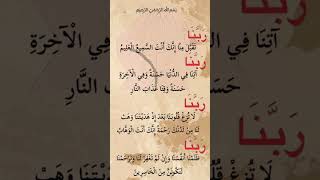 بِسْمِ اللهِ الرَّحْمٰنِ الرَّحِيْمِ
رَبَّنَا
آتِنَا فِي الْآخِرَةِ
تَقَبَّلْ مِنَّا إِنَّكَ أَنْتَ السَّمِيعُ الْعَلِيمُ
رَبَّنَا
آتِنَا فِي الدُّنْيَا حَسَنَةً وَفِي الْآخِرَةِ
حَسَنَةً وَقِنَا عَذَابَ النَّارِ
رَبَّنَا
لَا تُزِغْ قُلُوبَنَا بَعْدَ إِذْ هَدَيْتَنَا وَهَبْ
لَنَا مِنْ لَدُنْكَ رَحْمَةً إِنَّكَ أَنْتَ الْوَهَّابُ
رَبَّنَا
ظَلَمْنَا أَنْفُسَنَا وَإِنْ لَمْ تَغْفِرْ لَنَا وَتَرْحَمْنَا
لَنَكُونَنَّ مِنَ الْخَاسِرِينَ